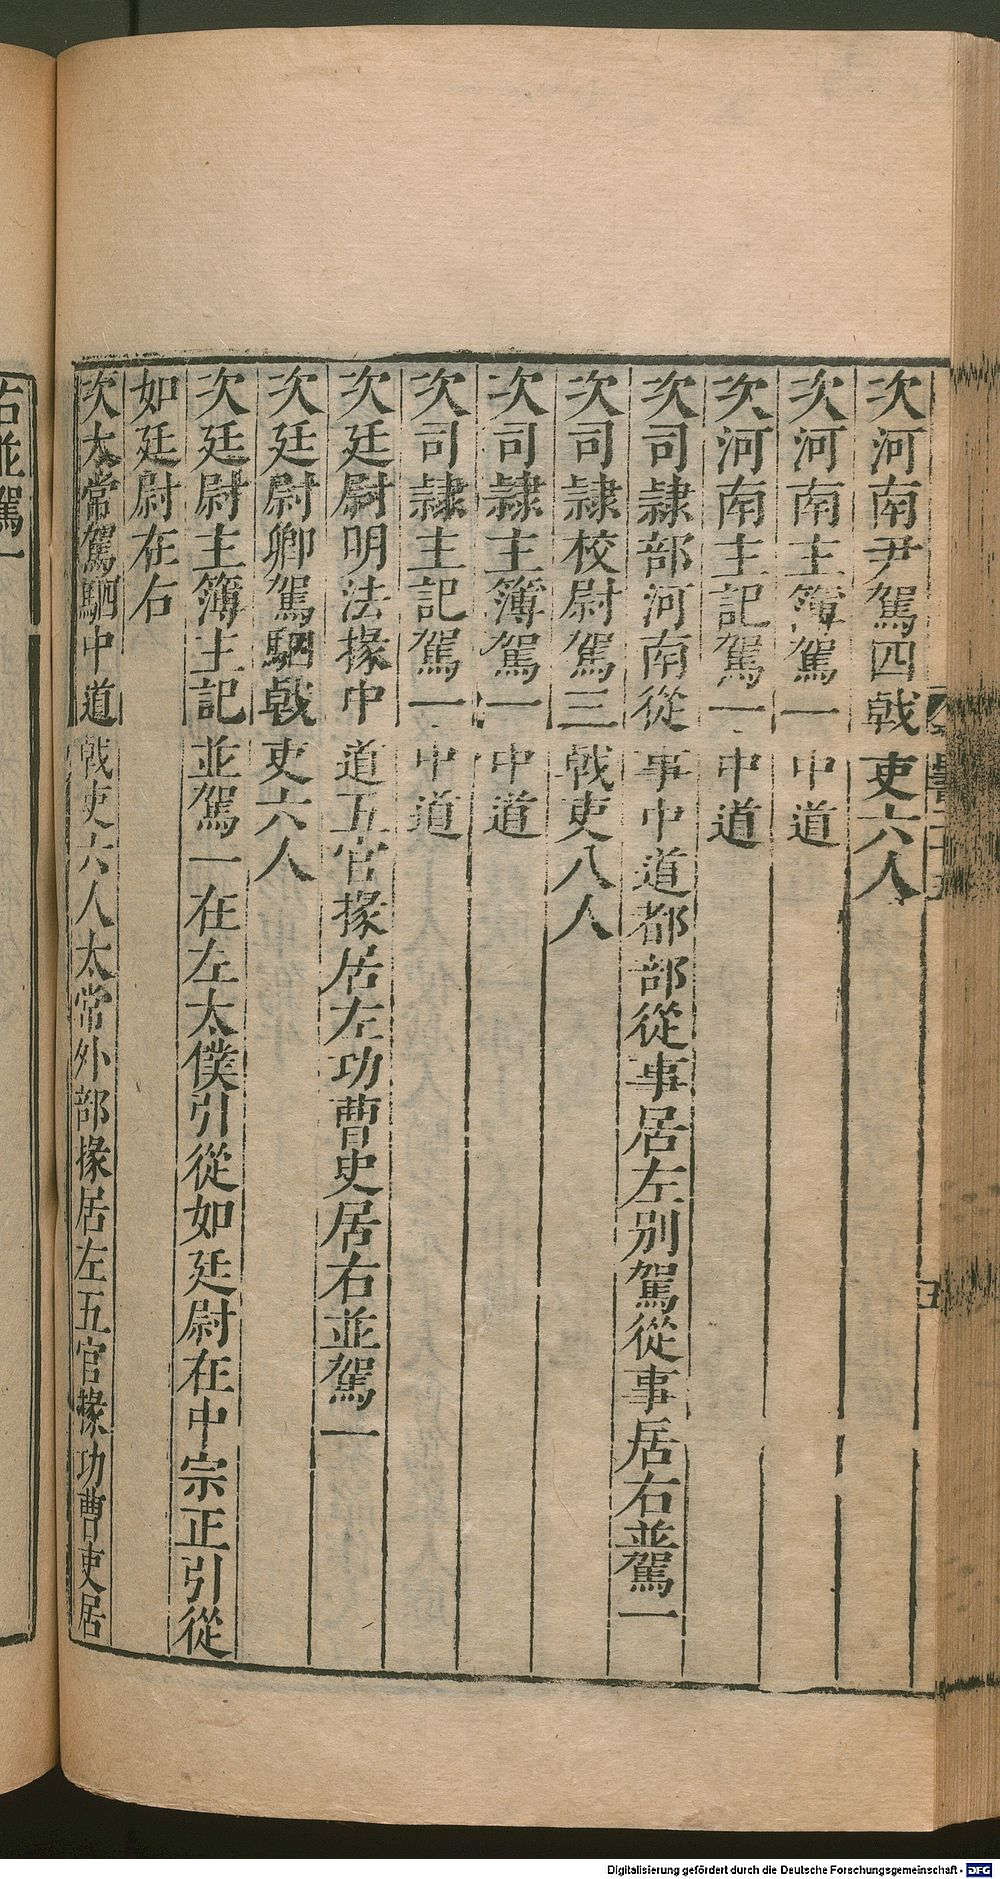 次河南尹駕四戟吏六人
次河南主簿駕一中道
次河南主記駕一中道
次司隷部河南從事中道都部從事居左別駕從事居右並駕一
次司隷校尉駕三戟吏八人
次司隷主簿駕一中道
次司隷主記駕一中道
次廷尉明法掾中道五官掾居左功曹史居右並駕一
次廷尉卿駕駟戟吏六人
次廷尉主簿主記並駕一在左太僕引從如廷尉在中宗正引從
如廷尉在右
次太常駕駟中道戟吏六人太常外部掾居左五官掾功曹吏居
右並駕一
Digitalisierung gefördert durch die Deutsche Forschungsgemeinschaft - DFG